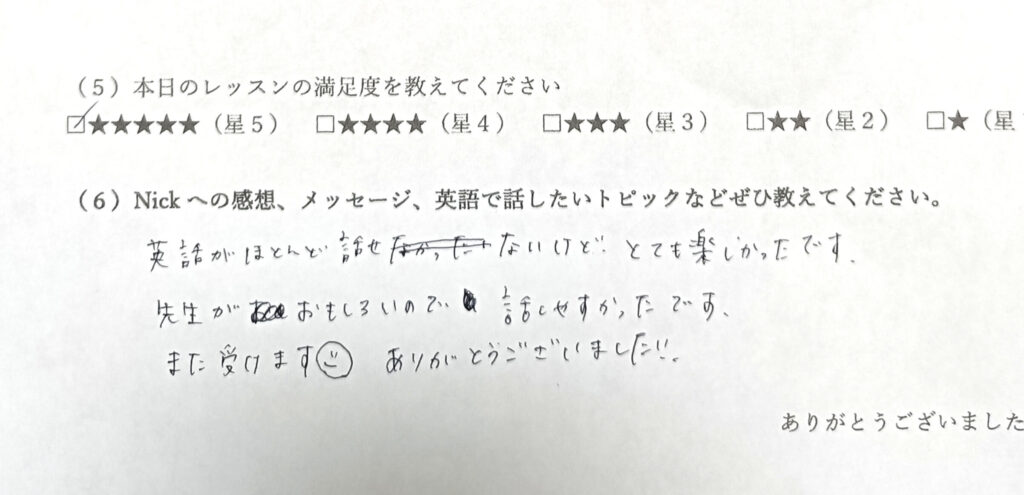 （5）本日のレッスンの満足度を教えてください
☑★★★★★（星５） □★★★★（星４） □★★★（星３） □★★（星２） □★（星
（6）Nickへの感想、メッセージ、英語で話したいトピックなどぜひ教えてください。
英話がほとんど話せなかったないけど とても楽しかったです.
先生が おもしろいので 話しやすかったです.
また受けます☺ ありがとうございました!!
ありがとうございました